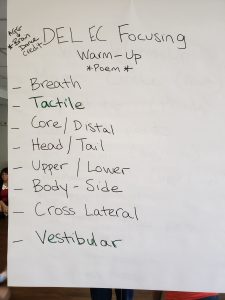 DEL EC Focusing
Brain
Dance
Credit
Warm-Up
*Poem*
- Breath
- Tactile
- Core/Distal
- Head/Tail
- Upper/Lower
- Body-Side
- Cross Lateral
- Vestibular